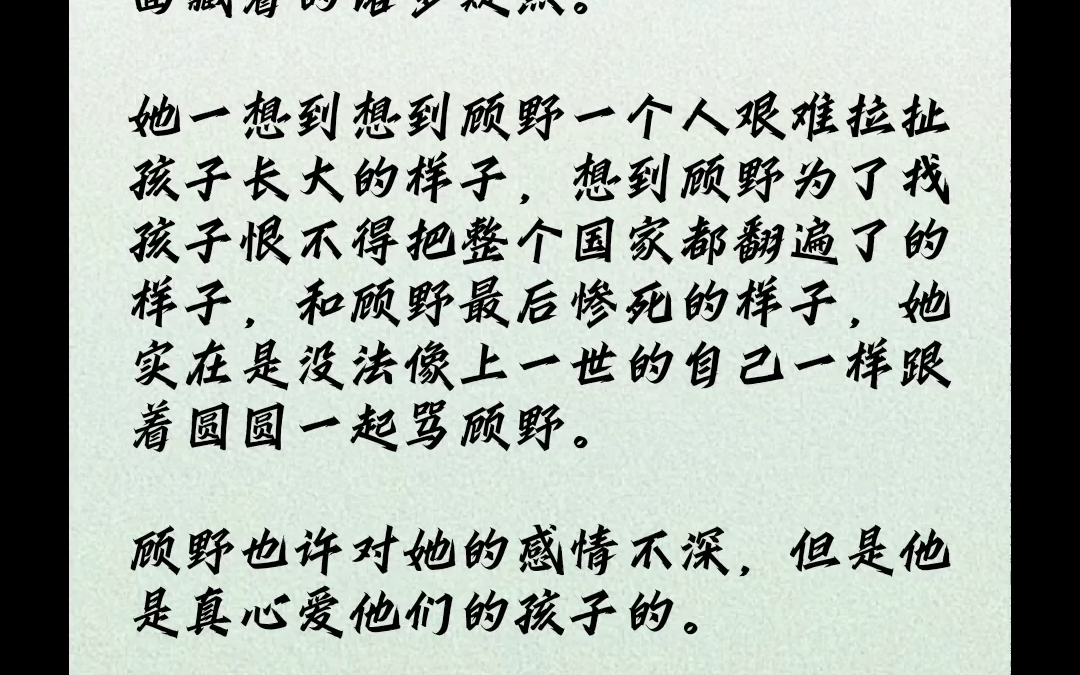 面藏着的诸多疑点。
她一想到想到顾野一个人艰难拉扯
孩子长大的样子，想到顾野为了找
孩子恨不得把整个国家都翻遍了的
样子，和顾野最后惨死的样子，她
实在是没法像上一世的自己一样跟
着圆圆一起骂顾野。
顾野也许对她的感情不深，但是他
是真心爱他们的孩子的。